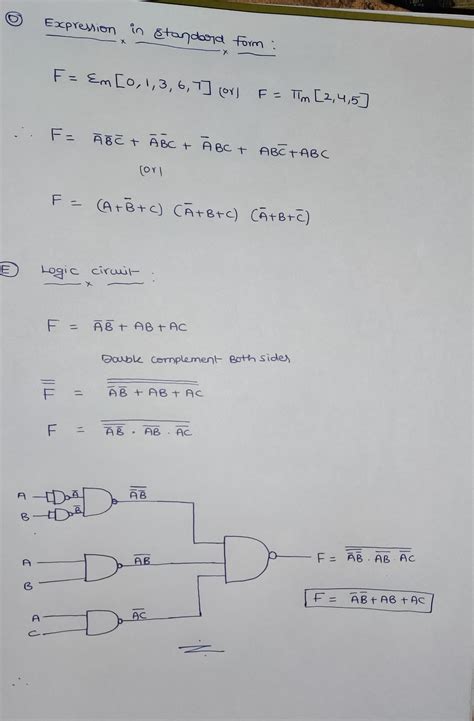 D Expression in standard form :
F = Σm [0,1,3,6,7] (or) F = Πm [2,4,5]
∴ F = A̅B̅C̅ + A̅B̅C + A̅BC + ABC̅ + ABC
(or)
F = (A+B̅+C) (A̅+B+C) (A̅+B+C̅)
E Logic circuit :
F = A̅B̅ + AB + AC
Double complement Both sides
F̿ = \overline{\overline{A̅B̅ + AB + AC}}
F = \overline{\overline{A̅B̅} . \overline{AB} . \overline{AC}}
A A̅ \overline{A̅B̅}
B B̅
A \overline{AB} F = \overline{\overline{A̅B̅} . \overline{AB} \overline{AC}}
B
F = A̅B̅ + AB + AC
A \overline{AC}
C